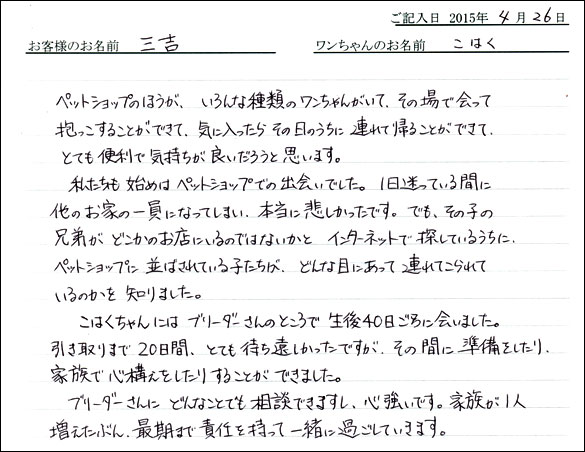 ご記入日 2015年 4月 26日
お客様のお名前 三吉 ワンちゃんのお名前 こはく
ペットショップのほうが、いろんな種類のワンちゃんがいて、その場で会って
抱っこすることができて、気に入ったらその日のうちに連れて帰ることができて、
とても便利で気持ちが良いだろうと思います。
私たちも始めはペットショップでの出会いでした。1日迷っている間に
他のお家の一員になってしまい、本当に悲しかったです。でも、その子の
兄弟がどこかのお店にいるのではないかとインターネットで探しているうちに、
ペットショップに並ばされている子たちが、どんな目にあって連れてこられて
いるのかを知りました。
こはくちゃんにはブリーダーさんのところで生後40日ごろに会いました。
引き取りまで20日間、とても待ち遠しかったですが、その間に準備をしたり、
家族で心構えをしたりすることができました。
ブリーダーさんにどんなことでも相談できますし、心強いです。家族が1人
増えたぶん、最期まで責任を持って一緒に過ごしていきます。